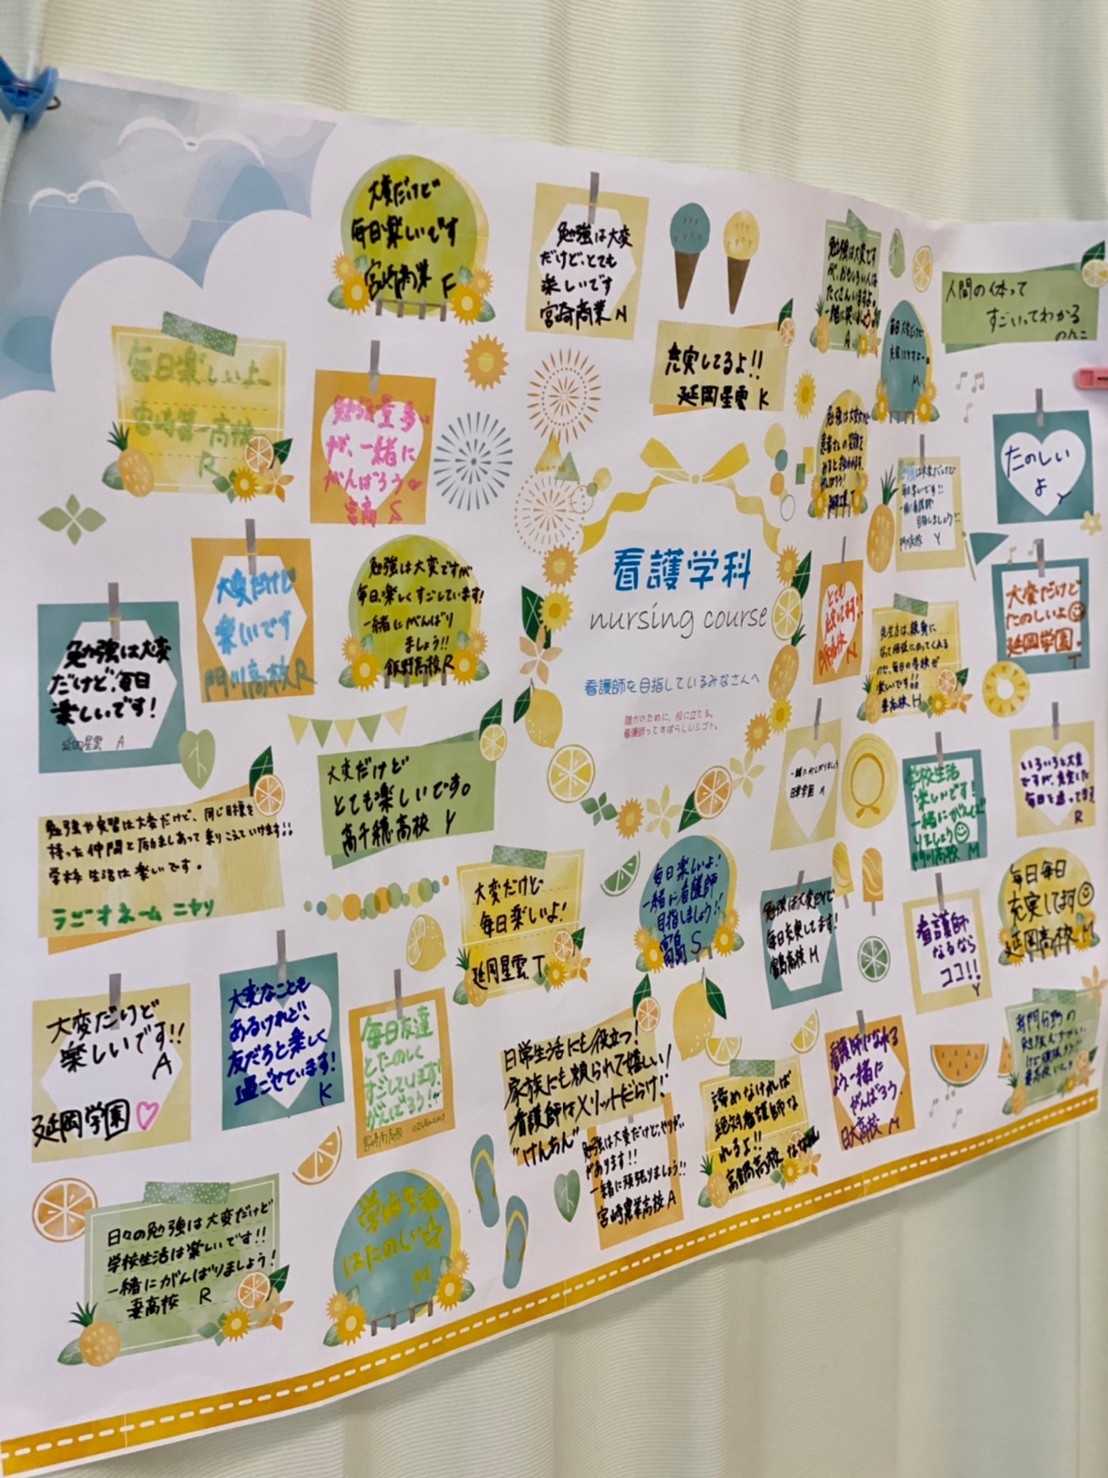 大変だけど
毎日楽しいです
宮崎商業 F
勉強は大変
だけど、とても
楽しいです
宮崎商業 N
充実してるよ!!
延岡星雲 K
勉強は大変です
が、おもしろい人は
たくさんいますよ
一緒に笑いましょう
A
人間の体って
すごいってわかる
のんこ
毎日楽しいよ
宮崎第一高校
R
勉強量多い
が、一緒に
がんばろう
宮商 S
たのしい
よ
Y
看護学科
nursing course
看護師を目指しているみなさんへ
誰かのために、役に立てる。
看護師ってすばらしいシゴト。
大変だけど
楽しいです
門川高校 R
勉強は大変ですが
毎日、楽しくすごしています!
一緒にがんばり
ましょう!!
飯野高校 R
大変だけど
たのしいよ
延岡学園.
T
勉強は大変
だけど、毎日
楽しいです!
延岡星雲 A
大変だけど
とても楽しいです。
高千穂高校 Y
学校生活
楽しいです!
一緒にがんば
りましょう
門川高校 M
いろいろと大変
ですが、充実した
毎日を送ってます
R
勉強や実習は大変だけど、同じ目標を
持った仲間と励ましあって乗りこえていけます!!
学校生活は楽しいです。
ラジオネーム ニヤリ
大変だけど
毎日楽しいよ!
延岡星雲 T
毎日楽しいよ!
一緒に看護師
目指しましょう!!
宮島 S
毎日充実してます!
M
看護師
なるなら
ココ!!
Y
毎日毎日
充実してます
延岡高校 M
大変だけど
楽しいです!!
A
延岡学園
大変なことも
あるけれど、
友だちと楽しく
過ごせています!
K
毎日友達
とたのしく
すごしています!
がんばろう!
日常生活にも役立つ!
家族にも頼られて嬉しい!
看護師はメリットだらけ!
"けんちん"
勉強は大変だけど、やりがい
があります!!
一緒に頑張りましょう!!
宮崎農業高校 A
諦めなければ
絶対看護師な
れるよ!!
高鍋高校
看護師になれる
よう一緒に
がんばろう.
日大高校 M
日々の勉強は大変だけど
学校生活は楽しいです!!
一緒にがんばりましょう!
妻高校 R
学校生活
はたのしい☆
M